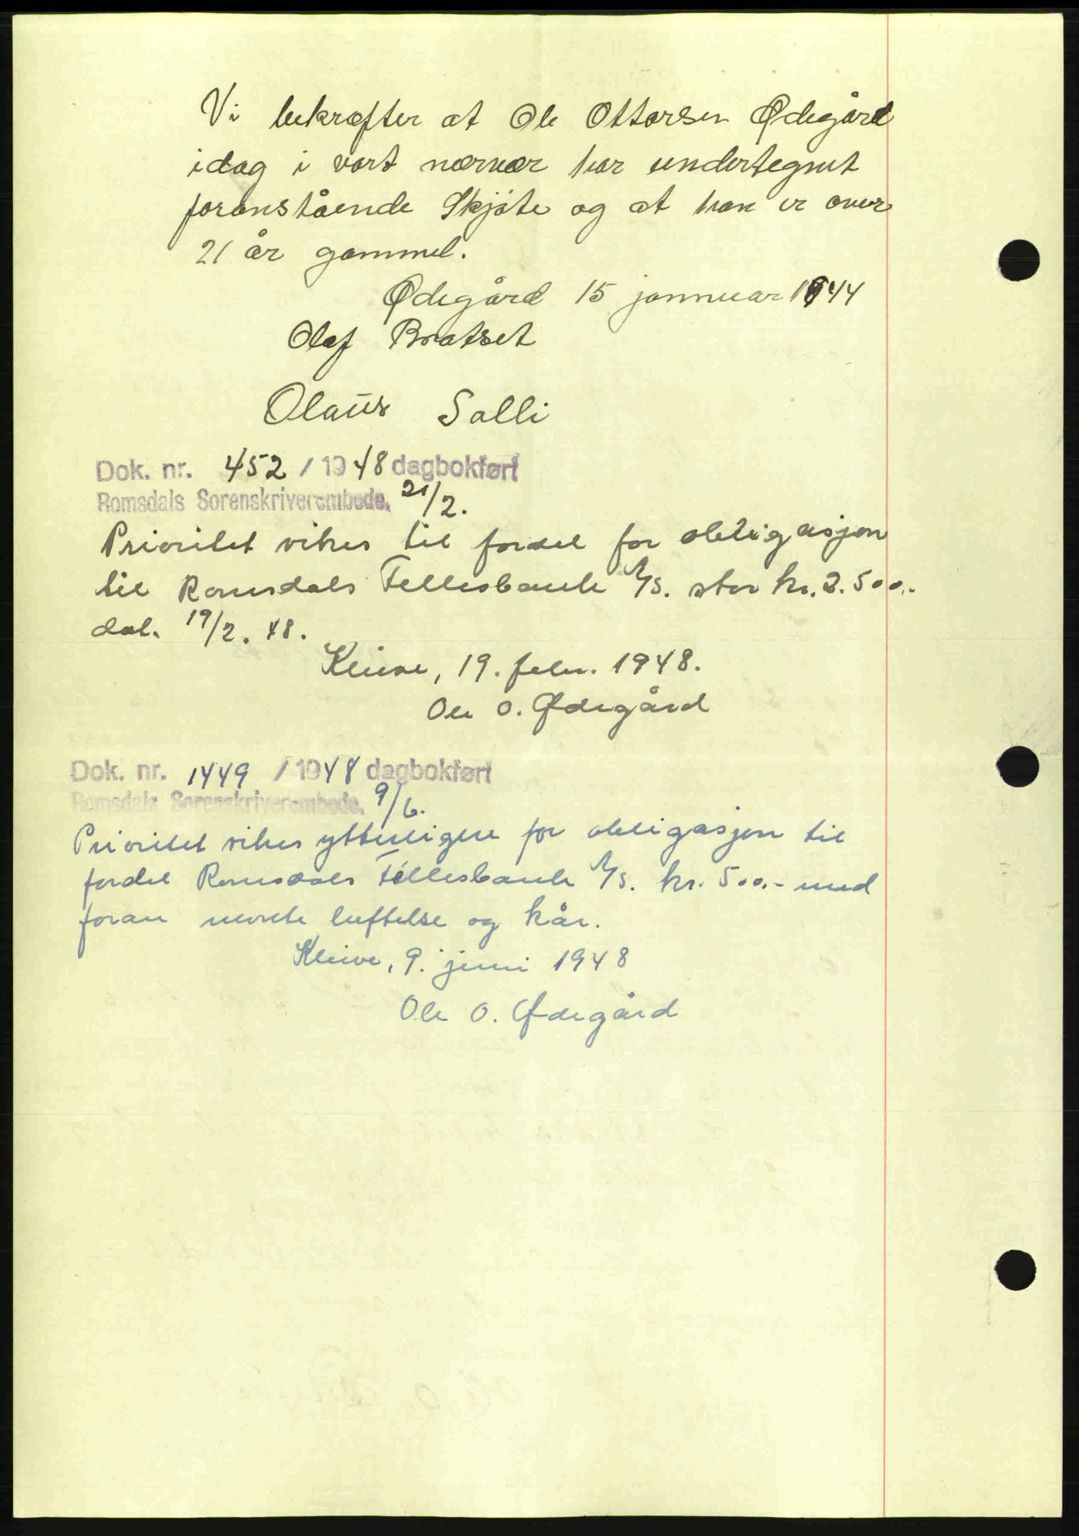 Vi bekræfter at Ole Ottarsen Ødegård
idag i vort nærvær har undertegnet
foranstående Skjøte og at han er over
21 år gammel.
Ødegård 15 jannuar 1944
Olaf Bratset
Olaus Solli
Dok. nr. 452 / 1948 dagbokført
Romsdals Sorenskriverembede, 21/2.
Prioritet vikes til fordel for obligasjon
til Romsdals Fellesbank A/S. stor kr. 2.500,-
dat. 19/2. 48.
Kleive, 19. febr. 1948.
Ole O. Ødegård
Dok. nr. 1449 / 1948 dagbokført
Romsdals Sorenskriverembede, 9/6.
Prioritet vikes ytterligere for obligasjon til
fordel Romsdals Fellesbank A/S. kr. 500,- med
foran nevnte heftelse og kår.
Kleive, 9. juni 1948
Ole O. Ødegård